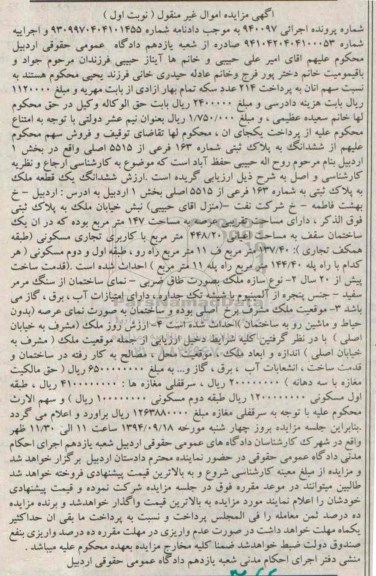 آگهی مزایده اموال غیر منقول ( نوبت اول )
شماره پرونده اجرائی ۹۴۰۰۹۷ به موجب دادنامه شماره ۹۳۰۹۹۷۰۴۰۴۱۰۱۴۵۵ و اجراییه
شماره ۹۴۱۰۴۲۰۴۰۴۱۰۰۰۵۳ صادره از شعبه یازدهم دادگاه عمومی حقوقی اردبیل
محکوم علیهم آقای امیر علی حبیبی و خانم ها آیناز حبیبی فرزندان مرحوم جواد و
باقیمومیت خانم دختر پور فرج وخانم عادله حیدری خانی فرزند یحیی محکوم هستند به
نسبت سهم آنان به پرداخت ۲۱۴ عدد سکه تمام بهار آزادی از بابت مهریه و مبلغ ۱۱۲۰۰۰۰
ریال بابت هزینه دادرسی و مبلغ ۲۴۰۰۰۰۰ ریال بابت حق الوکاله وکیل در حق محکوم
لها خانم سعیده عظیمی ، و مبلغ ۱/۷۵۰/۰۰۰ ریال بعنوان نیم عشر دولتی با توجه به امتناع
محکوم علیه از پرداخت یکجای آن ، محکوم لها تقاضای توقیف و فروش سهم محکوم
علیهم از ششدانگ به پلاک ثبتی شماره ۱۶۳ فرعی از ۵۵۱۵ اصلی واقع در بخش ۱
اردبیل بنام مرحوم روح اله حبیبی حفظ آباد است که موضوع به کارشناسی ارجاع و نظریه
کارشناسی و اصل به شرح ذیل ارزیابی گردیده است .ارزش ششدانگ یک قطعه ملک
به پلاک ثبتی به شماره ۱۶۳ فرعی از ۵۵۱۵ اصلی بخش ۱ اردبیل به آدرس : اردبیل - خ
بهشت فاطمه - خ شرکت نفت -(منزل آقای حبیبی) نبش خیابان ملک به پلاک ثبتی
فوق الذکر ، دارای مساحت تقریبی عرصه به مساحت ۱۴۷ متر مربع بوده که در آن یک
ساختمان سقف به مساحت اعیانی ۴۴۸/۲۰ متر مربع با کاربری تجاری مسکونی (طبقه
همکف تجاری )؛ ۱۳۷/۴۰ متر مربع ف ۱۱ متر مربع راه رو، طبقه اول و دوم مسکونی ( هر
کدام با راه پله ۱۴۴/۴۰ متر مربع راه پله ۱۱ متر مربع ) احداث شده است .(قدمت ساخت
پیش از ۲۰ سال ۲- نوع سازه ملک بصورت طاق ضربی - نمای ساختمان از سنگ مرمر
سفید – جنس پنجره از آلمینیوم با شیشه تک جداره ، دارای امتیازات آب ، برق ، گاز می
باشد ۳- موقعیت ملک مشرف برخ اصلی بوده و ساختمان به صورت نمای عرصه (بدون
حیاط و ماشین رو به ساختمان )احداث شده است ۴- ارزش روز ملک (مشرف به خیابان
اصلی ) با در نظر گرفتین کلیه شرایط دخیل ارزیابی از جمله موقعیت ملک ( مشرف به
خیابان اصلی ) اندازه و ابعاد ملک ، موقعیت محل ، مصالح به کار رفته در ساختمان و
قدمت ساخت ، انشعابات آب ، برق ، گاز و... به مبلغ ۶۵۰۰۰۰۰۰۰۰ ریال ( حق مالکیت
مغازه با سه دهانه ) ۲۰۰۰۰۰۰۰۰۰ ریال ، سرقفلی مغازه ها : ۴۱۰۰۰۰۰۰۰۰ ریال ، طبقه
اول مسکونی ۱۲۰۰۰۰۰۰۰۰ ریال طبقه دوم مسکونی ۱۰۰۰۰۰۰۰۰۰ ریال ) و سهم الارث
محکوم علیه با توجه به سرقفلی مغازه مبلغ ۱۲۶۳۸۸۰۰۰۰ ریال براورد و اعلام می گردد
.بنابراین جلسه مزایده بروز چهار شنبه مورخه ۱۳۹۴/۰۹/۱۸ ساعت ۱۱ الی ۱۱/۳۰ ظهر
واقع در شهرک کارشناسان دادگاه های عمومی حقوقی اردبیل شعبه یازدهم اجرای احکام
مدنی دادگاه عمومی حقوقی در حضور نماینده محترم دادستان اردبیل برگزار خواهد شد
و مزایده از مبلغ معینه کارشناسی شروع و به بالاترین قیمت پیشنهادی فروخته خواهد شد
طالبین میتوانند در موعد مقرره فوق در جلسه مزایده شرکت نموده و قیمت پیشنهادی
خودشان را اعلام نمایند مورد مزایده به بالاترین قیمت واگذار خواهدشد و برنده مزایده
ده درصد ثمن معامله را فی المجلس پرداخت و نسبت به پرداخت ما بقی آن حداکثیر
یکماه مهلت خواهد داشت در صورت عدم واریزی در مهلت مقرره ده درصد واریزی بنفع
صندوق دولت ضبط خواهدشد ضمنا کلیه مخارج مزایده بعهده محکوم علیه میباشد .
منشی دفتر اجرای احکام مدنی شعبه یازدهم دادگاه عمومی حقوقی اردبیل